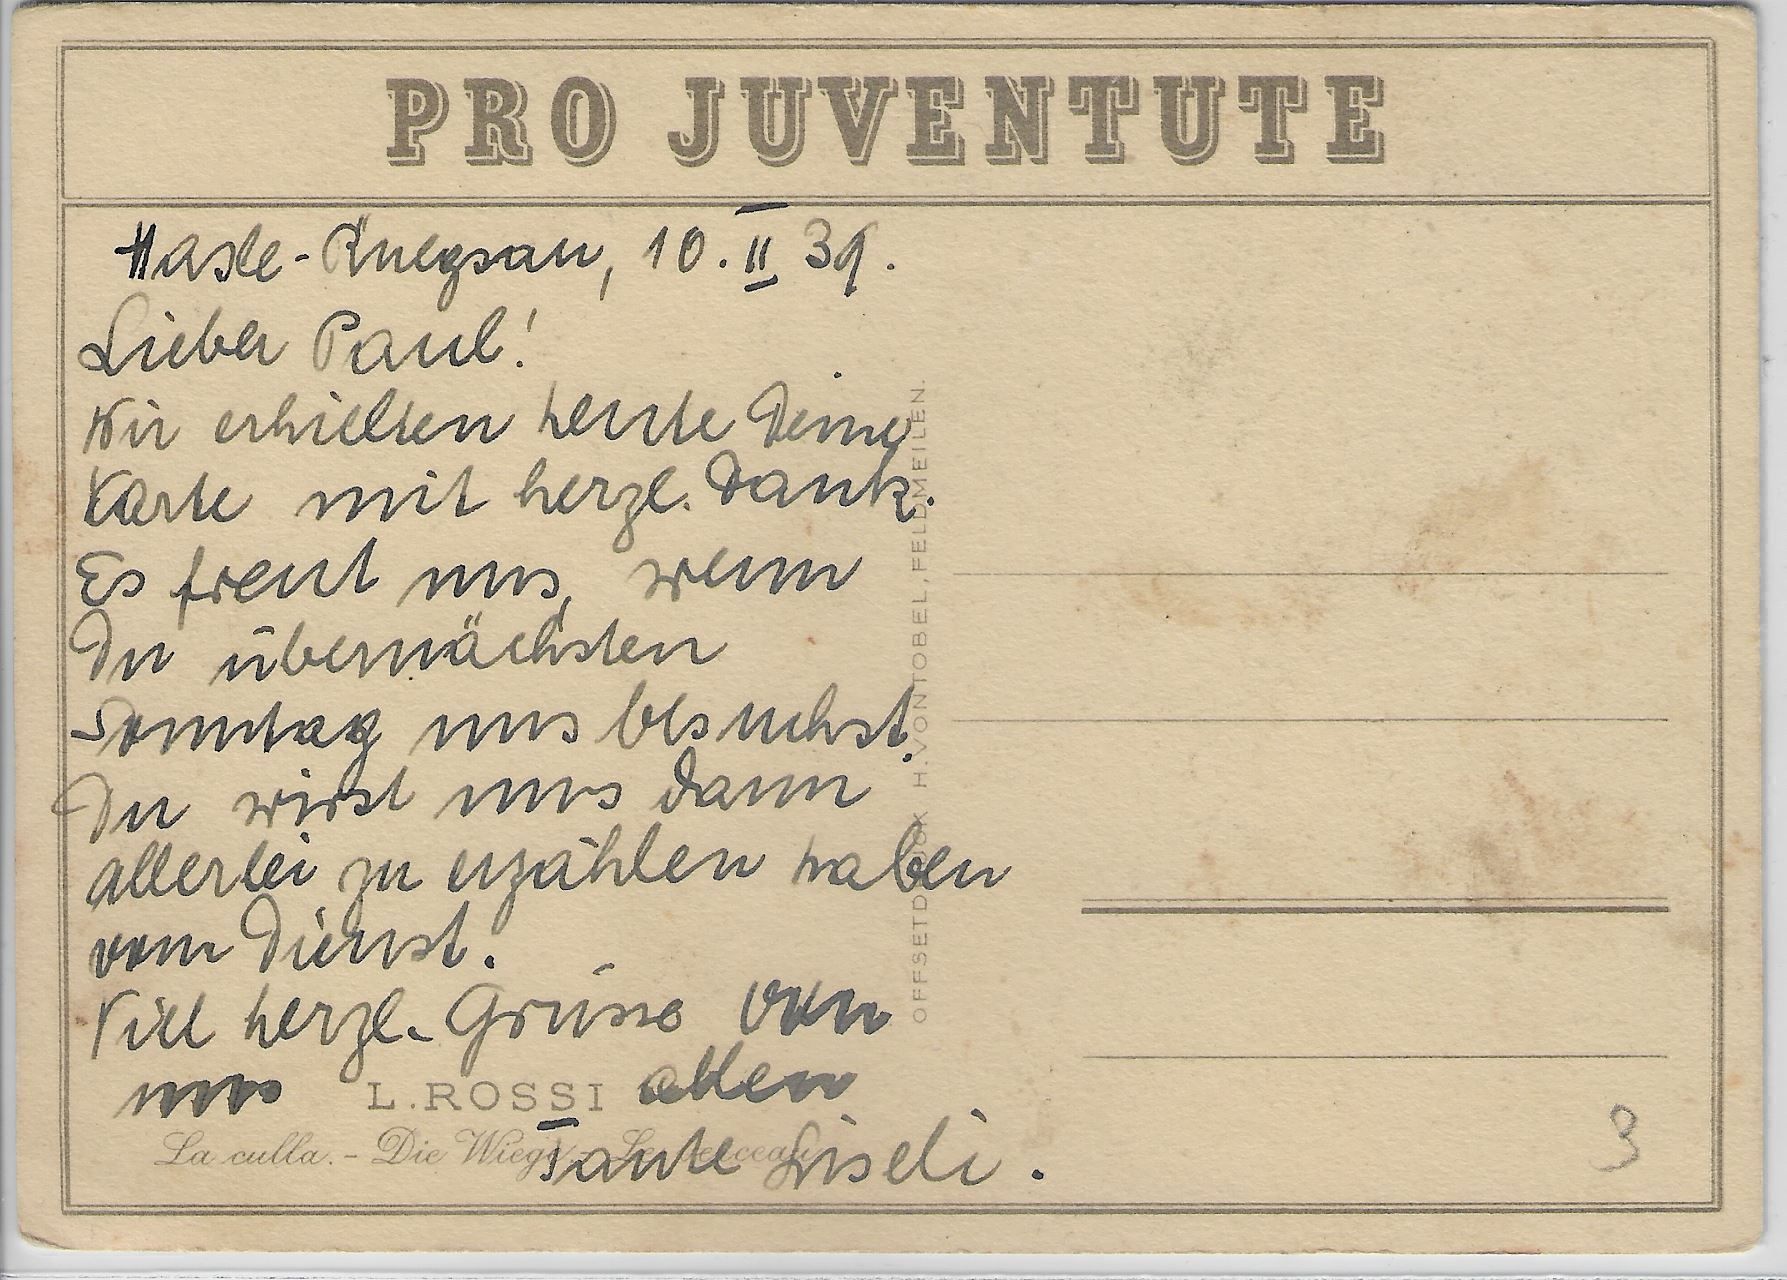 PRO JUVENTUTE
Hasle-Rüegsau, 10. II 39.
Lieber Paul!
Wir erhielten heute Deine
Karte mit herzl. Dank.
Es freut uns, wenn
Du übernächsten
Sonntag uns besuchst.
Du wirst uns dann
allerlei zu erzählen haben
vom Dienst.
Viel herzl. Grüsse von
uns allen
Tante Liseli.
L. ROSSI
La culla. - Die Wiege. - Le berceau.
OFFSETDRUCK H. VONTOBEL, FELDMEILEN.
3